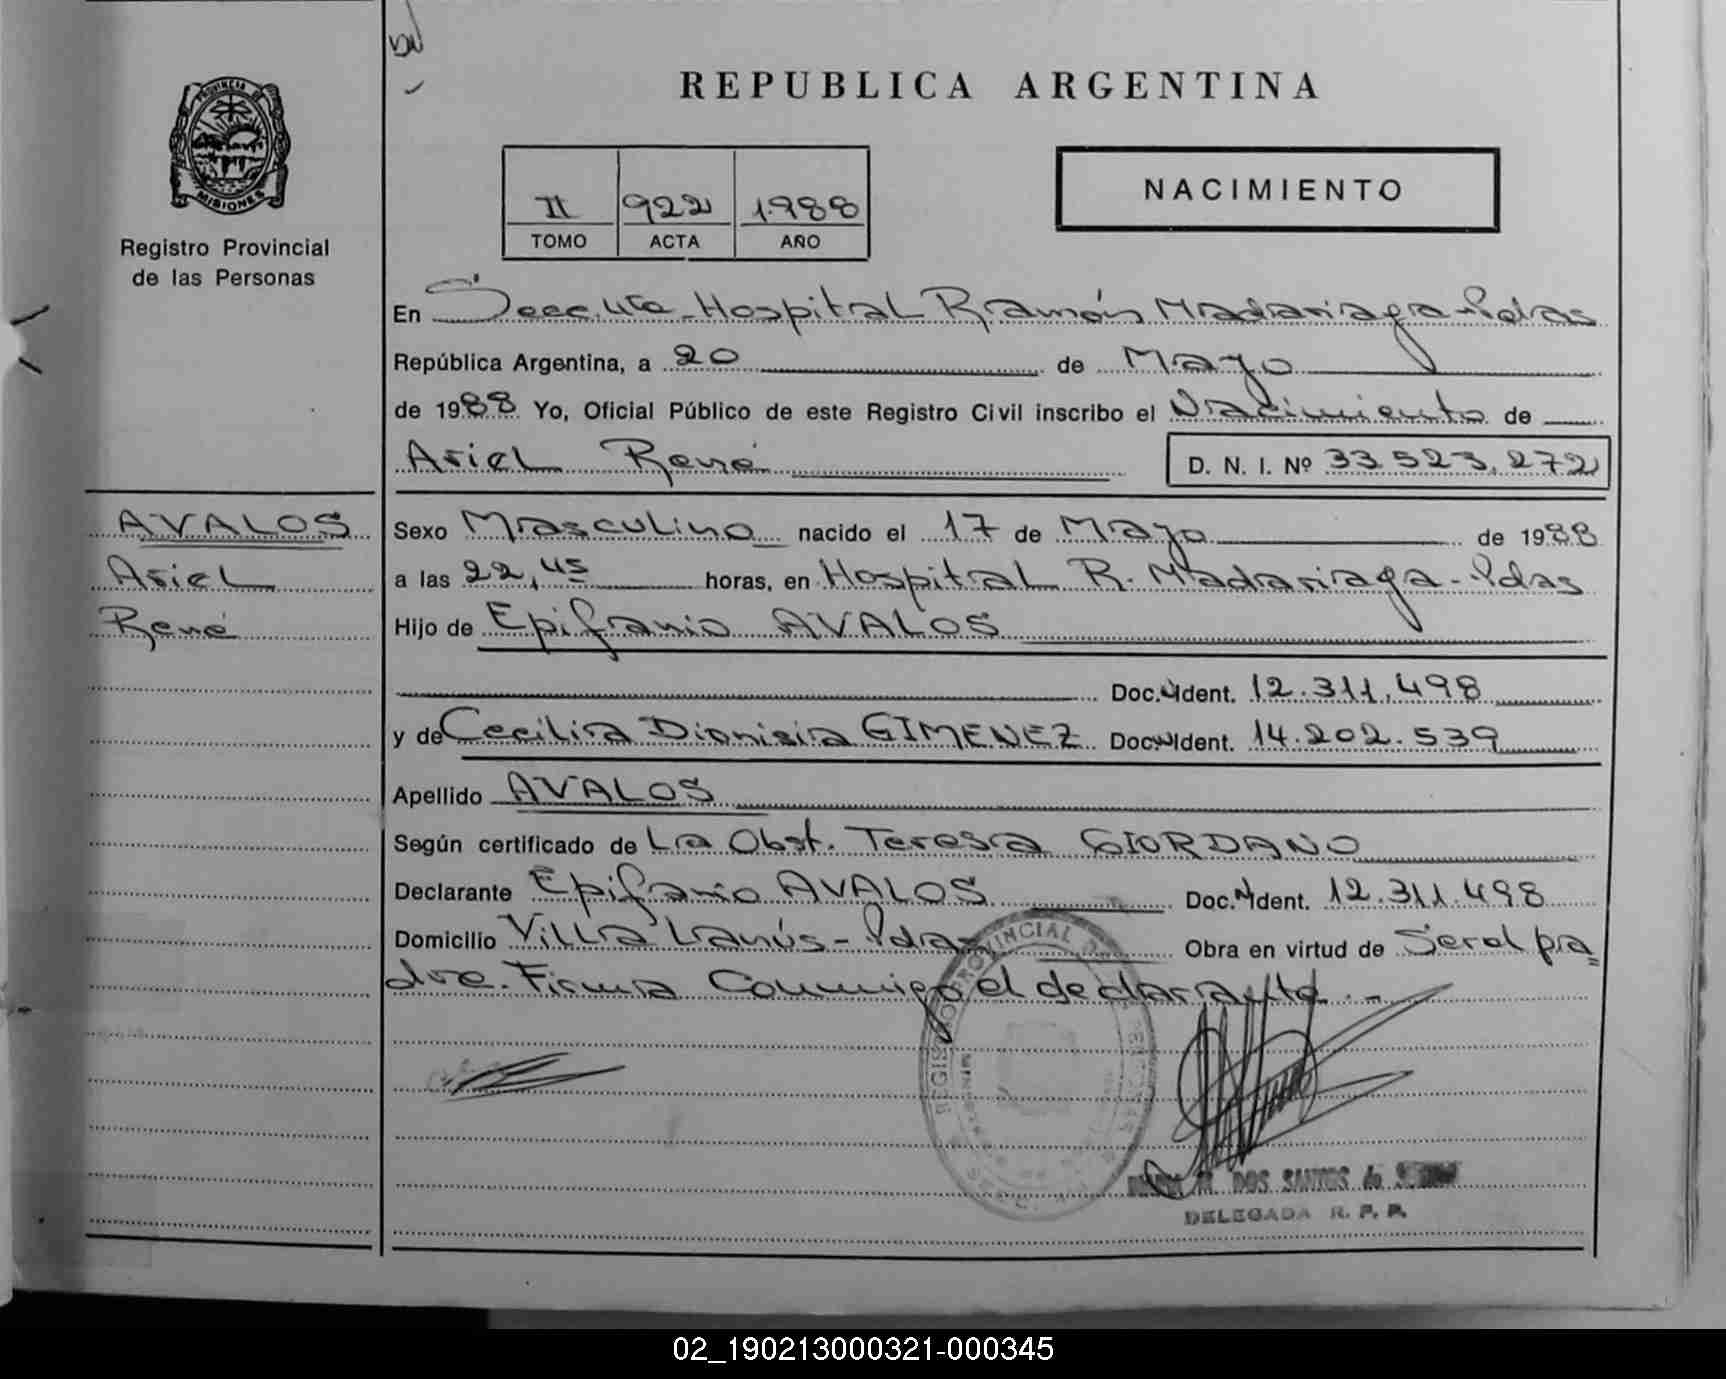 REPUBLICA ARGENTINA
PROVINCIA DE
MISIONES
Registro Provincial
de las Personas
II 922 1.988
TOMO ACTA AÑO
NACIMIENTO
En Secc. 4ta - Hospital Ramón Madariaga - Pdas
República Argentina, a 20 de Mayo
de 1988 Yo, Oficial Público de este Registro Civil inscribo el Nacimiento de
Ariel René D. N. I. Nº 33.523.272
AVALOS
Ariel
René
Sexo Masculino nacido el 17 de Mayo de 1988
a las 22,45 horas, en Hospital R. Madariaga - Pdas
Hijo de Epifanio AVALOS
Doc. Ident. 12.311.498
y de Cecilia Dionisia GIMENEZ Doc. Ident. 14.202.539
Apellido AVALOS
Según certificado de La Obst. Teresa GIORDANO
Declarante Epifanio AVALOS Doc. Ident. 12.311.498
Domicilio Villa Lanús - Pdas Obra en virtud de Ser el pa
dre. Firma Conmigo el declarante . -
REGISTRO PROVINCIAL DE PERSONAS
DOS SANTOS de
DELEGADA R. P. P.
02_190213000321-000345